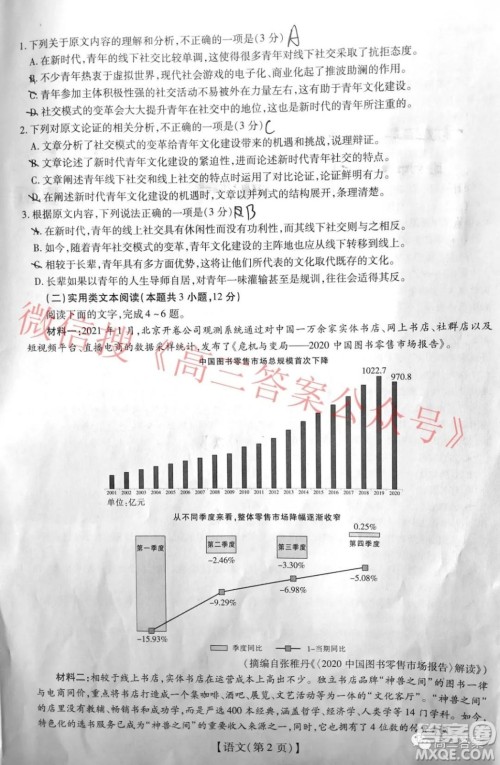 1. 下列关于原文内容的理解和分析,不正确的一项是(3 分) A
A. 在新时代,青年的线下社交比较单调,这使得很多青年对线下社交采取了抗拒态度。
B. 不少青年热衷于虚拟世界,现代社会游戏的电子化,商业化起了推波助澜的作用。
C. 青年参加主体积极性强的社交活动不易被外在力量左右,这有助于青年的身心发展。
D. 社交模式的变革会大大提升青年在社交中的地位,这也是新时代的青年所注重的。
2. 下列对原文论证的相关分析,不正确的一项是(3 分) C
A. 文章分析了社交模式的变革给青年文化建设带来的机遇和挑战,说理辩证。
B. 文章论述了新时代青年文化建设的紧迫性,进而论述新时代青年社交的特点。
C. 文章阐述青年线下社交和线上社交的特点时运用了对比论证,论证鲜明有力。
D. 在阐述新时代青年文化建设时,文章以并列式的结构展开,条理清晰。
3. 根据原文内容,下列说法正确的一项是(3 分) B
A. 在新时代,青年的线上社交具有休闲性而没有功利性,其线下社交则与之相反。
B. 如今,随着青年社交模式的变革,青年文化建设的主阵地也应从线下转移到线上。
C. 相较于长辈,青年具有多方面优势,这将促使他们所代表的文化取代既存的文化。
D. 长辈如果以青年的人生导师自居,对青年一味灌输甚至是规训,往往会适得其反。
(二) 实用类文本阅读(本题共 3 小题,12 分)
阅读下面的文字,完成 4~6 题。
材料一:2021 年 1 月,北京开卷公司观测系统通过对中国一万余家实体书店、网上书店、社群店以及
短视频平台、直播电商的数据采样统计,发布了《危机与变局——2020 中国图书零售市场报告》。
中国图书零售市场总规模首次下降
1022.7
970.8
2001 2002 2003 2004 2005 2006 2007 2008 2009 2010 2011 2012 2013 2014 2015 2016 2017 2018 2019 2020
单位:亿元
从不同季度来看,整体零售市场降幅逐渐收窄
0.25%
第一季度 第二季度 第三季度 第四季度
-2.46% -3.30%
-5.08%
-9.29% -6.98%
-15.93%
季度同比 1-当期同比
(摘编自张稚丹《〈2020 中国图书零售市场报告〉解读》)
材料二:相较于线上书店,实体书店在运营成本上高出不少。独立书店品牌“神兽之间”的图书一律
与电商同价,重点将书店打造成一个集咖啡、酒吧、展览、文艺演出等为一体的“文化客厅”。“神兽之间”
的店内没有教辅书、畅销书和成功书,而是严选 400 本经典,涵盖哲学、经济学、人类学等 14 门学科。如今,
特色化的选书服务已成为“神兽之间”重要的收入来源之一,同时,它也拥有了 4 位数的
【语文(第 2 页)】
微信搜《高三答案公众号》
答案圈
高三答案